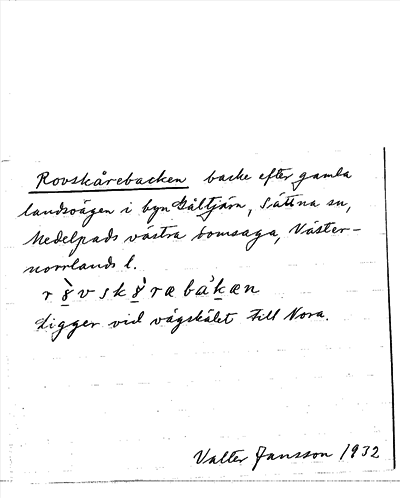 Rovskårebacken backe efter gamla
landsvägen i byn Gåltjärn, Sättna sn,
Medelpads västra domsaga, Väster-
norrlands l.
r o̱̊̀ v s k o̱̊̀ r a b å̱̀ k æ n
Ligger vid vägskälet till Nora.
Valter Jansson 1932